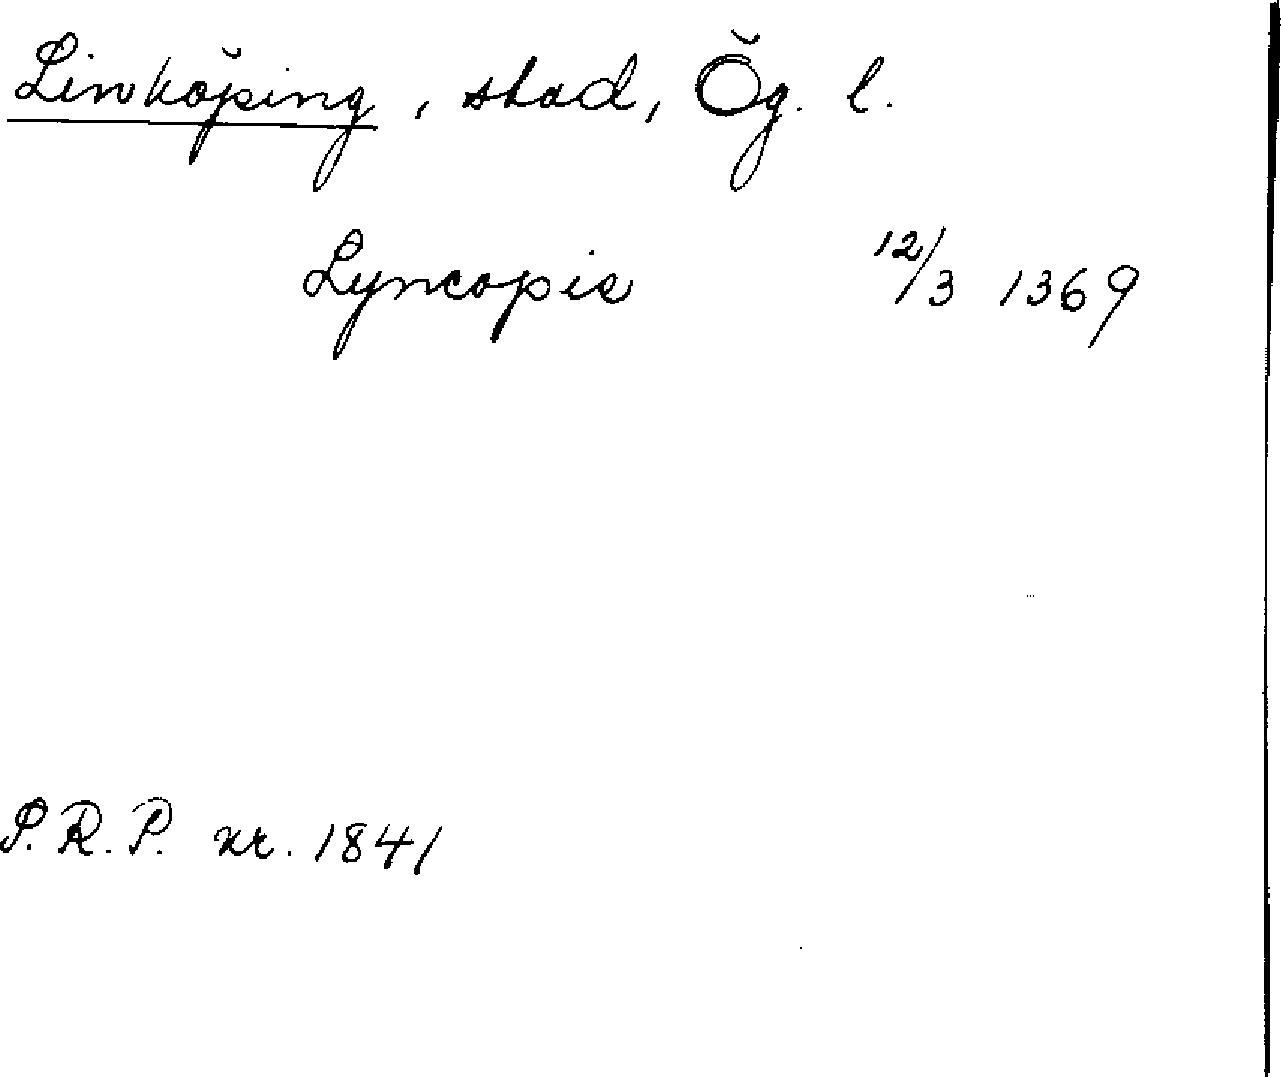 Linköping, stad, Ög. l.
Lyncopie 12/3 1369
P.R.P. nr. 1841